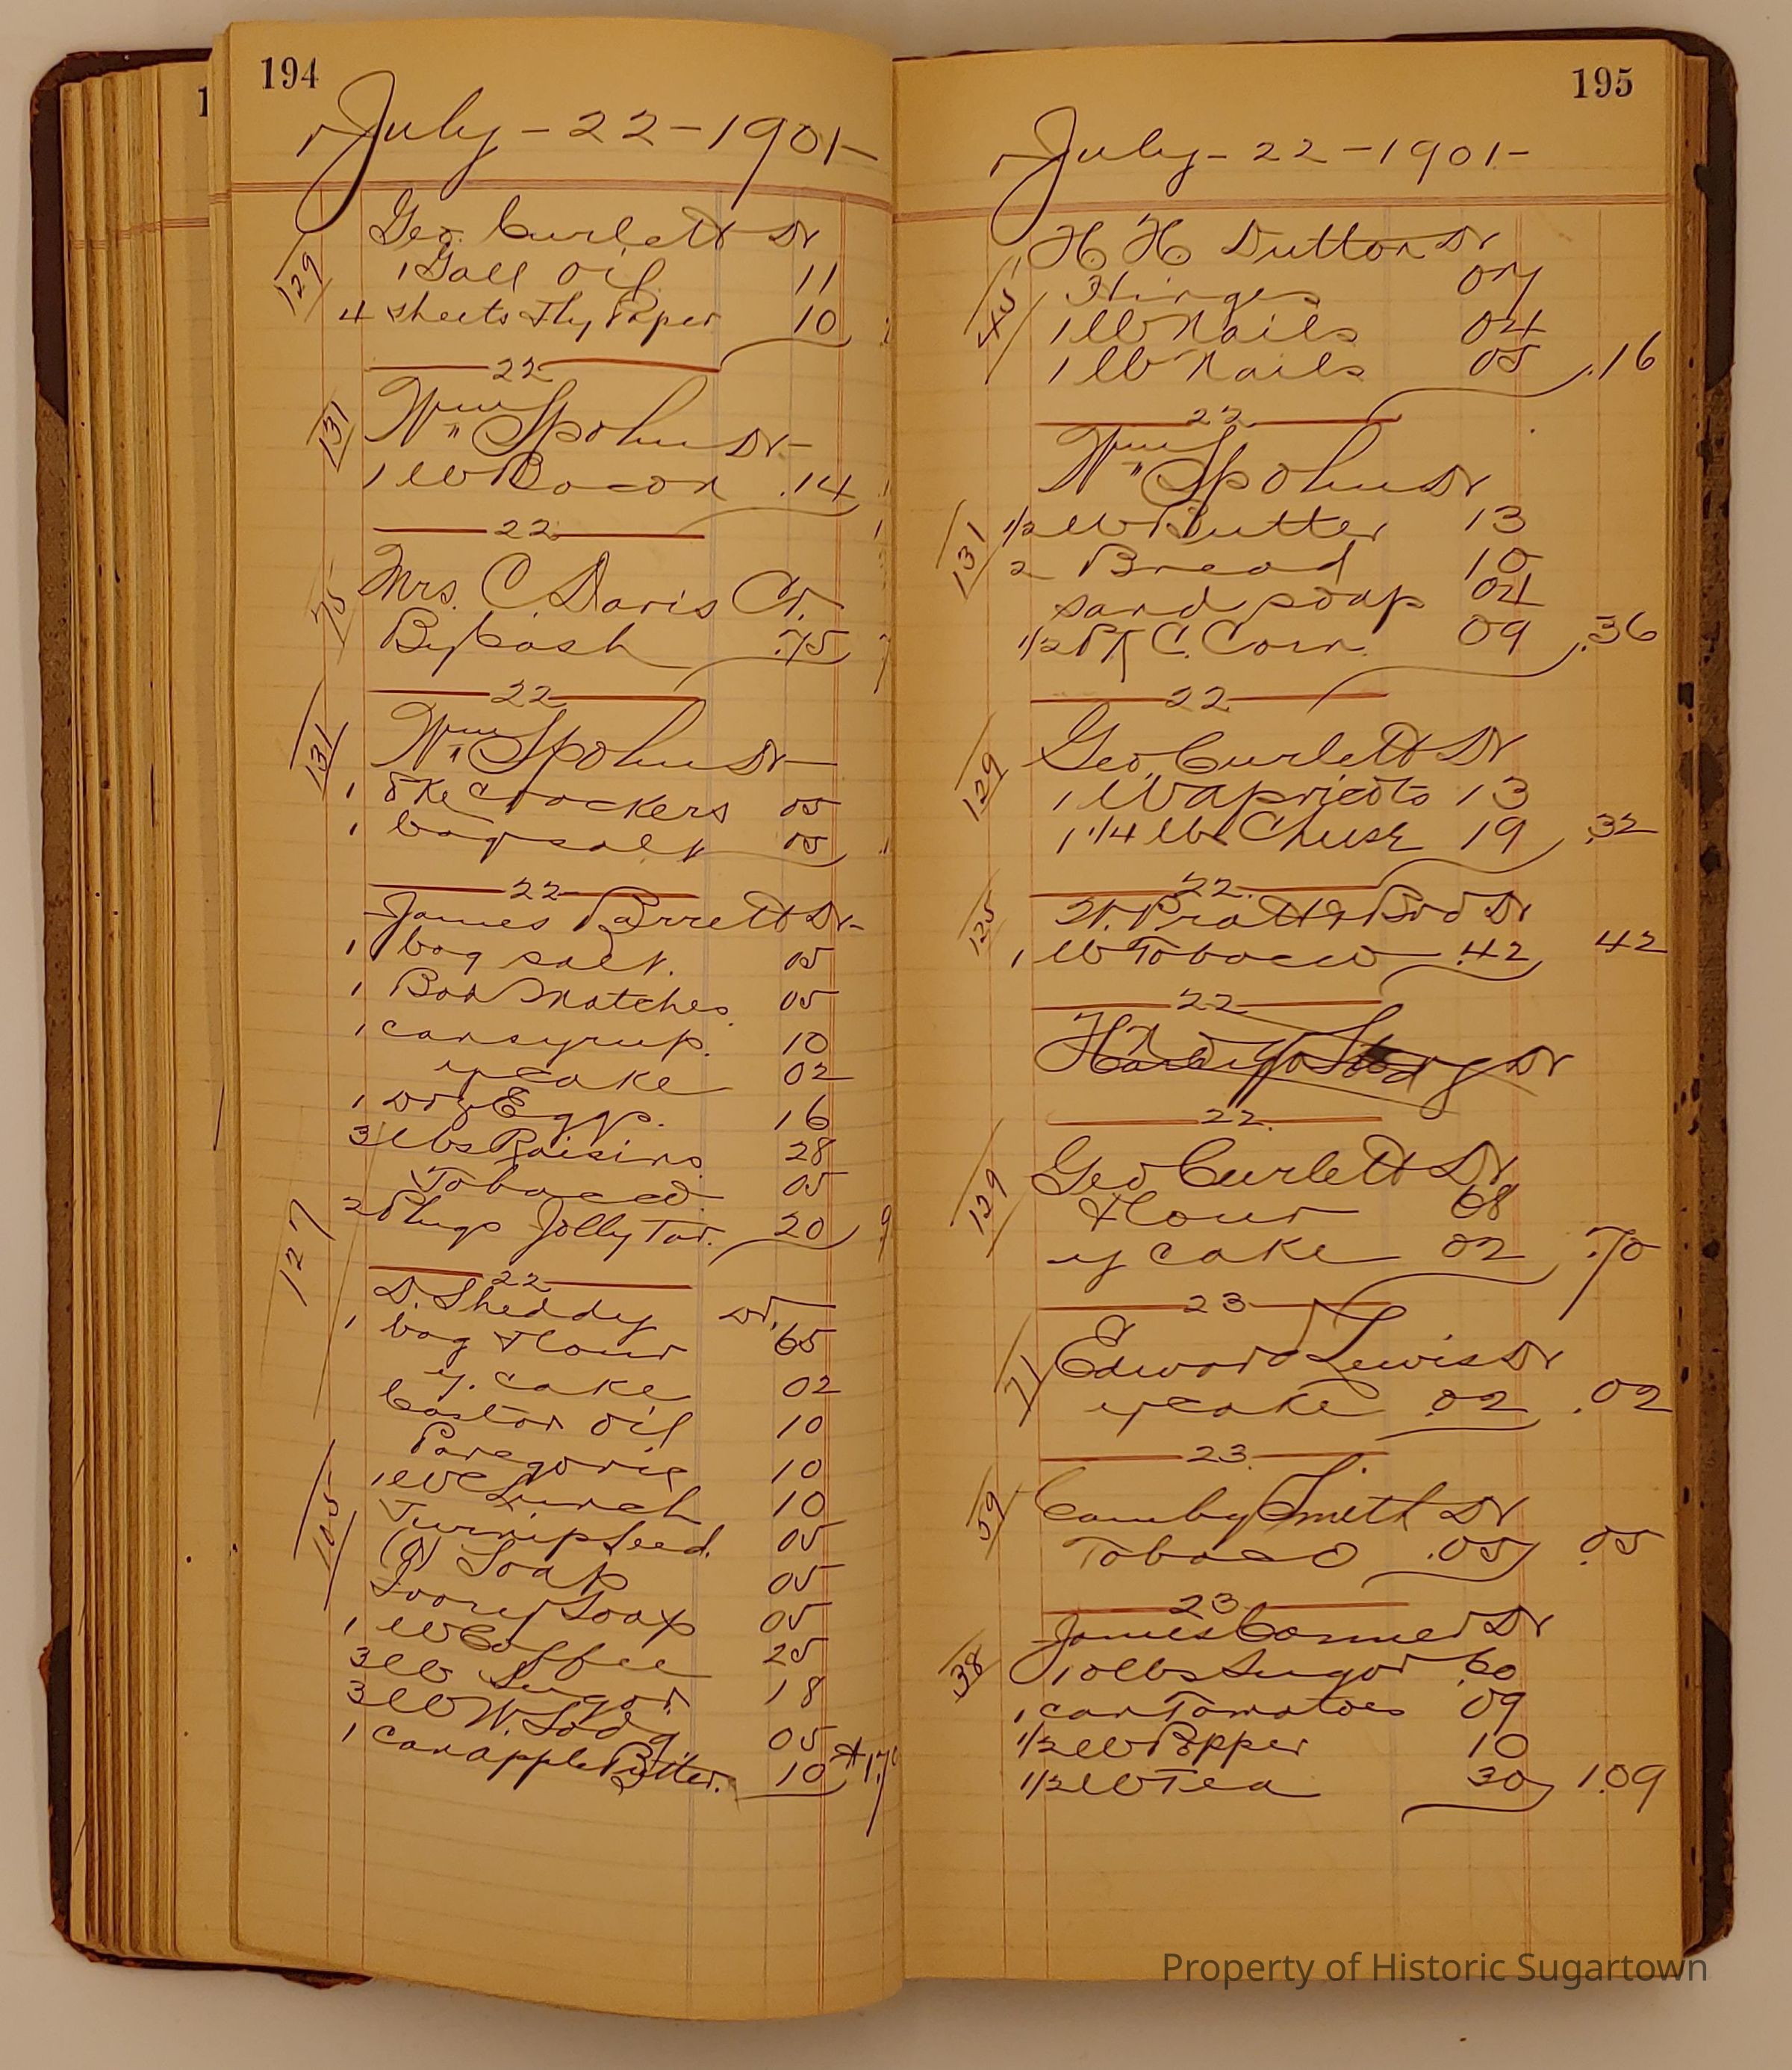 194
July - 22 - 1901 -
129
Geo. Curlett Dr
1 Gall Oil 11
4 sheets Fly Paper 10
22
131
Wm Spohn Dr -
1 lb Bacon .14
22
75
Mrs. C. Davis Cr.
By Cash .75
22
131
Wm Spohn Dr
1 Crackers 05
1 bag salt 05
22
127
James Barrett Dr -
1 bag salt. 05
1 Box Matches. 05
1 can syrup. 10
y cake 02
1 doz Eggs. 16
3 lbs Raisins. 28
Tobacco. 05
2 Plugs Jolly Tar. 20
22
105
D. Sheddy Dr.
1 bag Flour 65
y. cake 02
Castor Oil 10
Paregoric 10
1 lb Lunch 10
Turnip Seed. 05
Soap 05
Ivory Soap 05
1 lb Coffee 25
3 lb Sugar. 18
3 lb W. Soda 05
1 can apple Butter. 10
195
July - 22 - 1901 -
45
H H Dutton Dr
Hinges 07
1 lb Nails 04
1 lb Nails 05 .16
22
131
Wm Spohn Dr
1/2 lb Butter 13
2 Bread 10
sand soap 04
1/2 Pk C. Corn. 09 .36
22
129
Geo. Curlett Dr
1 lb apricots 13
1 1/4 lb Cheese 19 .32
22
125
W. Pratt & Bro Dr
1 lb Tobacco .42 42
22
Dr
22
129
Geo Curlett Dr
Flour 68
y cake 02 .70
23
71
Edward Lewis Dr
y cake .02 .02
23
59
Camby Smith Dr
Tobacco .05 .05
23
38
James Conner Dr
10 lbs Sugar .60
1 can Tomatoes 09
1/2 lb Pepper 10
1/2 lb Tea 30 1.09
Property of Historic Sugartown